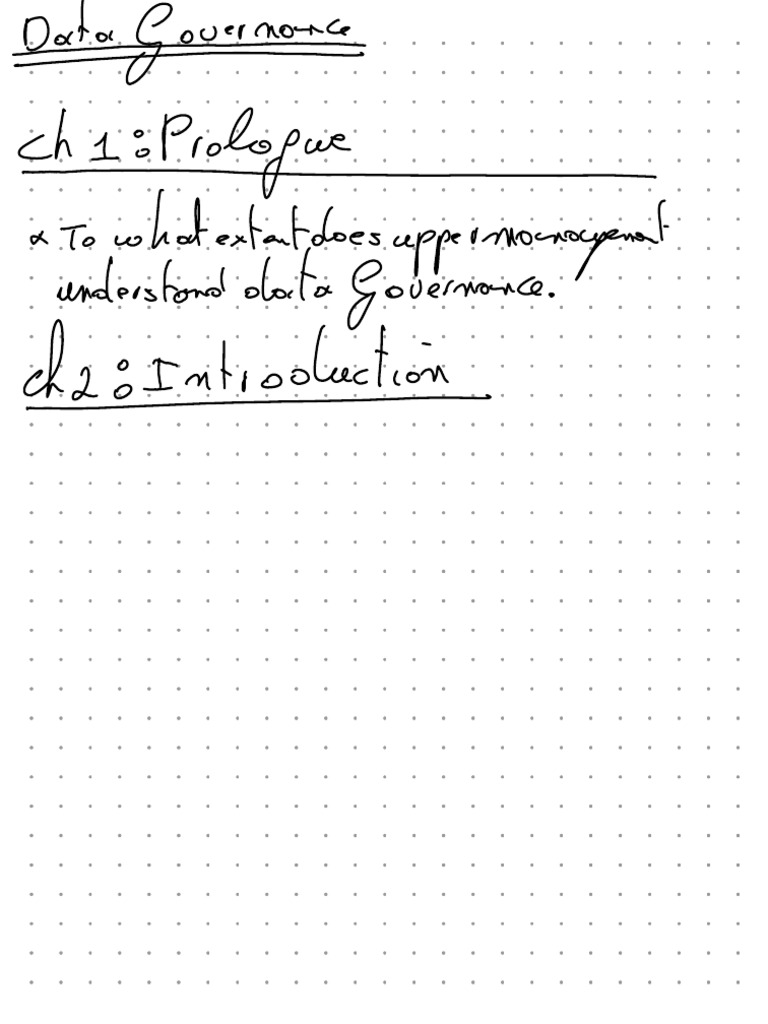 Data Governance
ch 1: Prologue
α To what extent does upper management
understand data Governance.
ch 2: Introduction